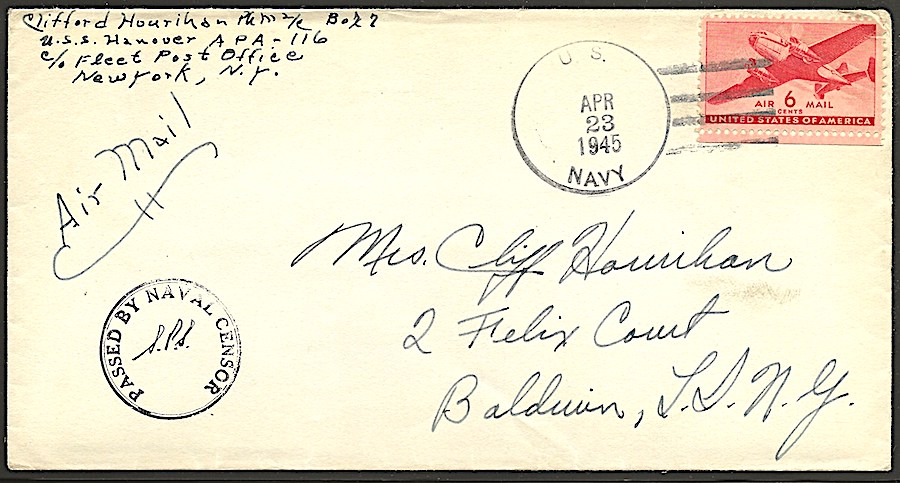 Clifford Hourihan PhM 2/c Box 7
U.S.S. Hanover APA-116
c/o Fleet Post Office
New York, N.Y.
U.S.
APR
23
1945
NAVY
AIR 6 MAIL
CENTS
UNITED STATES OF AMERICA
Air Mail
Mrs. Cliff Hourihan
2 Felix Court
Baldwin, L.I. N.Y.
PASSED BY NAVAL CENSOR
S.P.S.